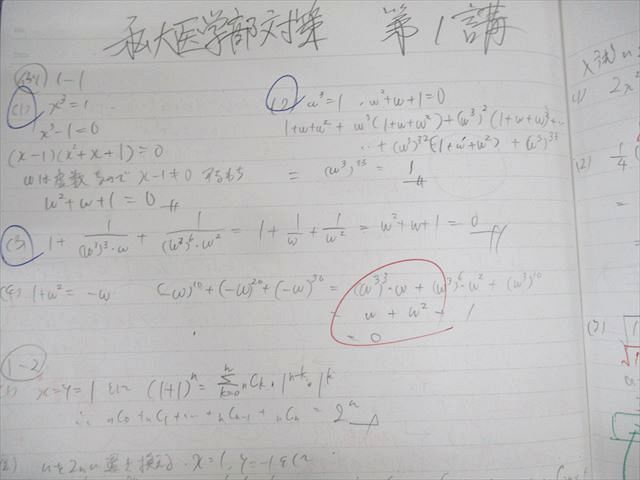 私大医学部対策 第1講
1-1
(1) x³=1
x³-1=0
(x-1)(x²+x+1)=0
ωは虚数なので x-1≠0 すなわち
ω²+ω+1=0
(2) ω³=1, ω²+ω+1=0
1+ω+ω²+ω³(1+ω+ω²)+(ω³)²(1+ω+ω²)+…
…+(ω³)³²(1+ω+ω²)+(ω³)³³
=(ω³)³³=1
(3) 1+1/((ω³)³·ω)+1/((ω³)⁶·ω²)=1+1/ω+1/ω²=ω²+ω+1=0
(4) 1+ω²=-ω (-ω)¹⁰+(-ω)²⁰+(-ω)³⁰=(ω³)³·ω+(ω³)⁶·ω²+(ω³)¹⁰
ω+ω²+1
=0
1-2
(1) x=y=1 (1+1)ⁿ=Σₖ₌₀ⁿ ₙCₖ·1ⁿ⁻ᵏ·1ᵏ
∴ ₙC₀+ₙC₁+…+ₙCₙ₋₁+ₙCₙ=2ⁿ
(2) nを2nに置き換える. x=1, y=-1
(1) 2x²
(2) 1/4
=
=
(3)